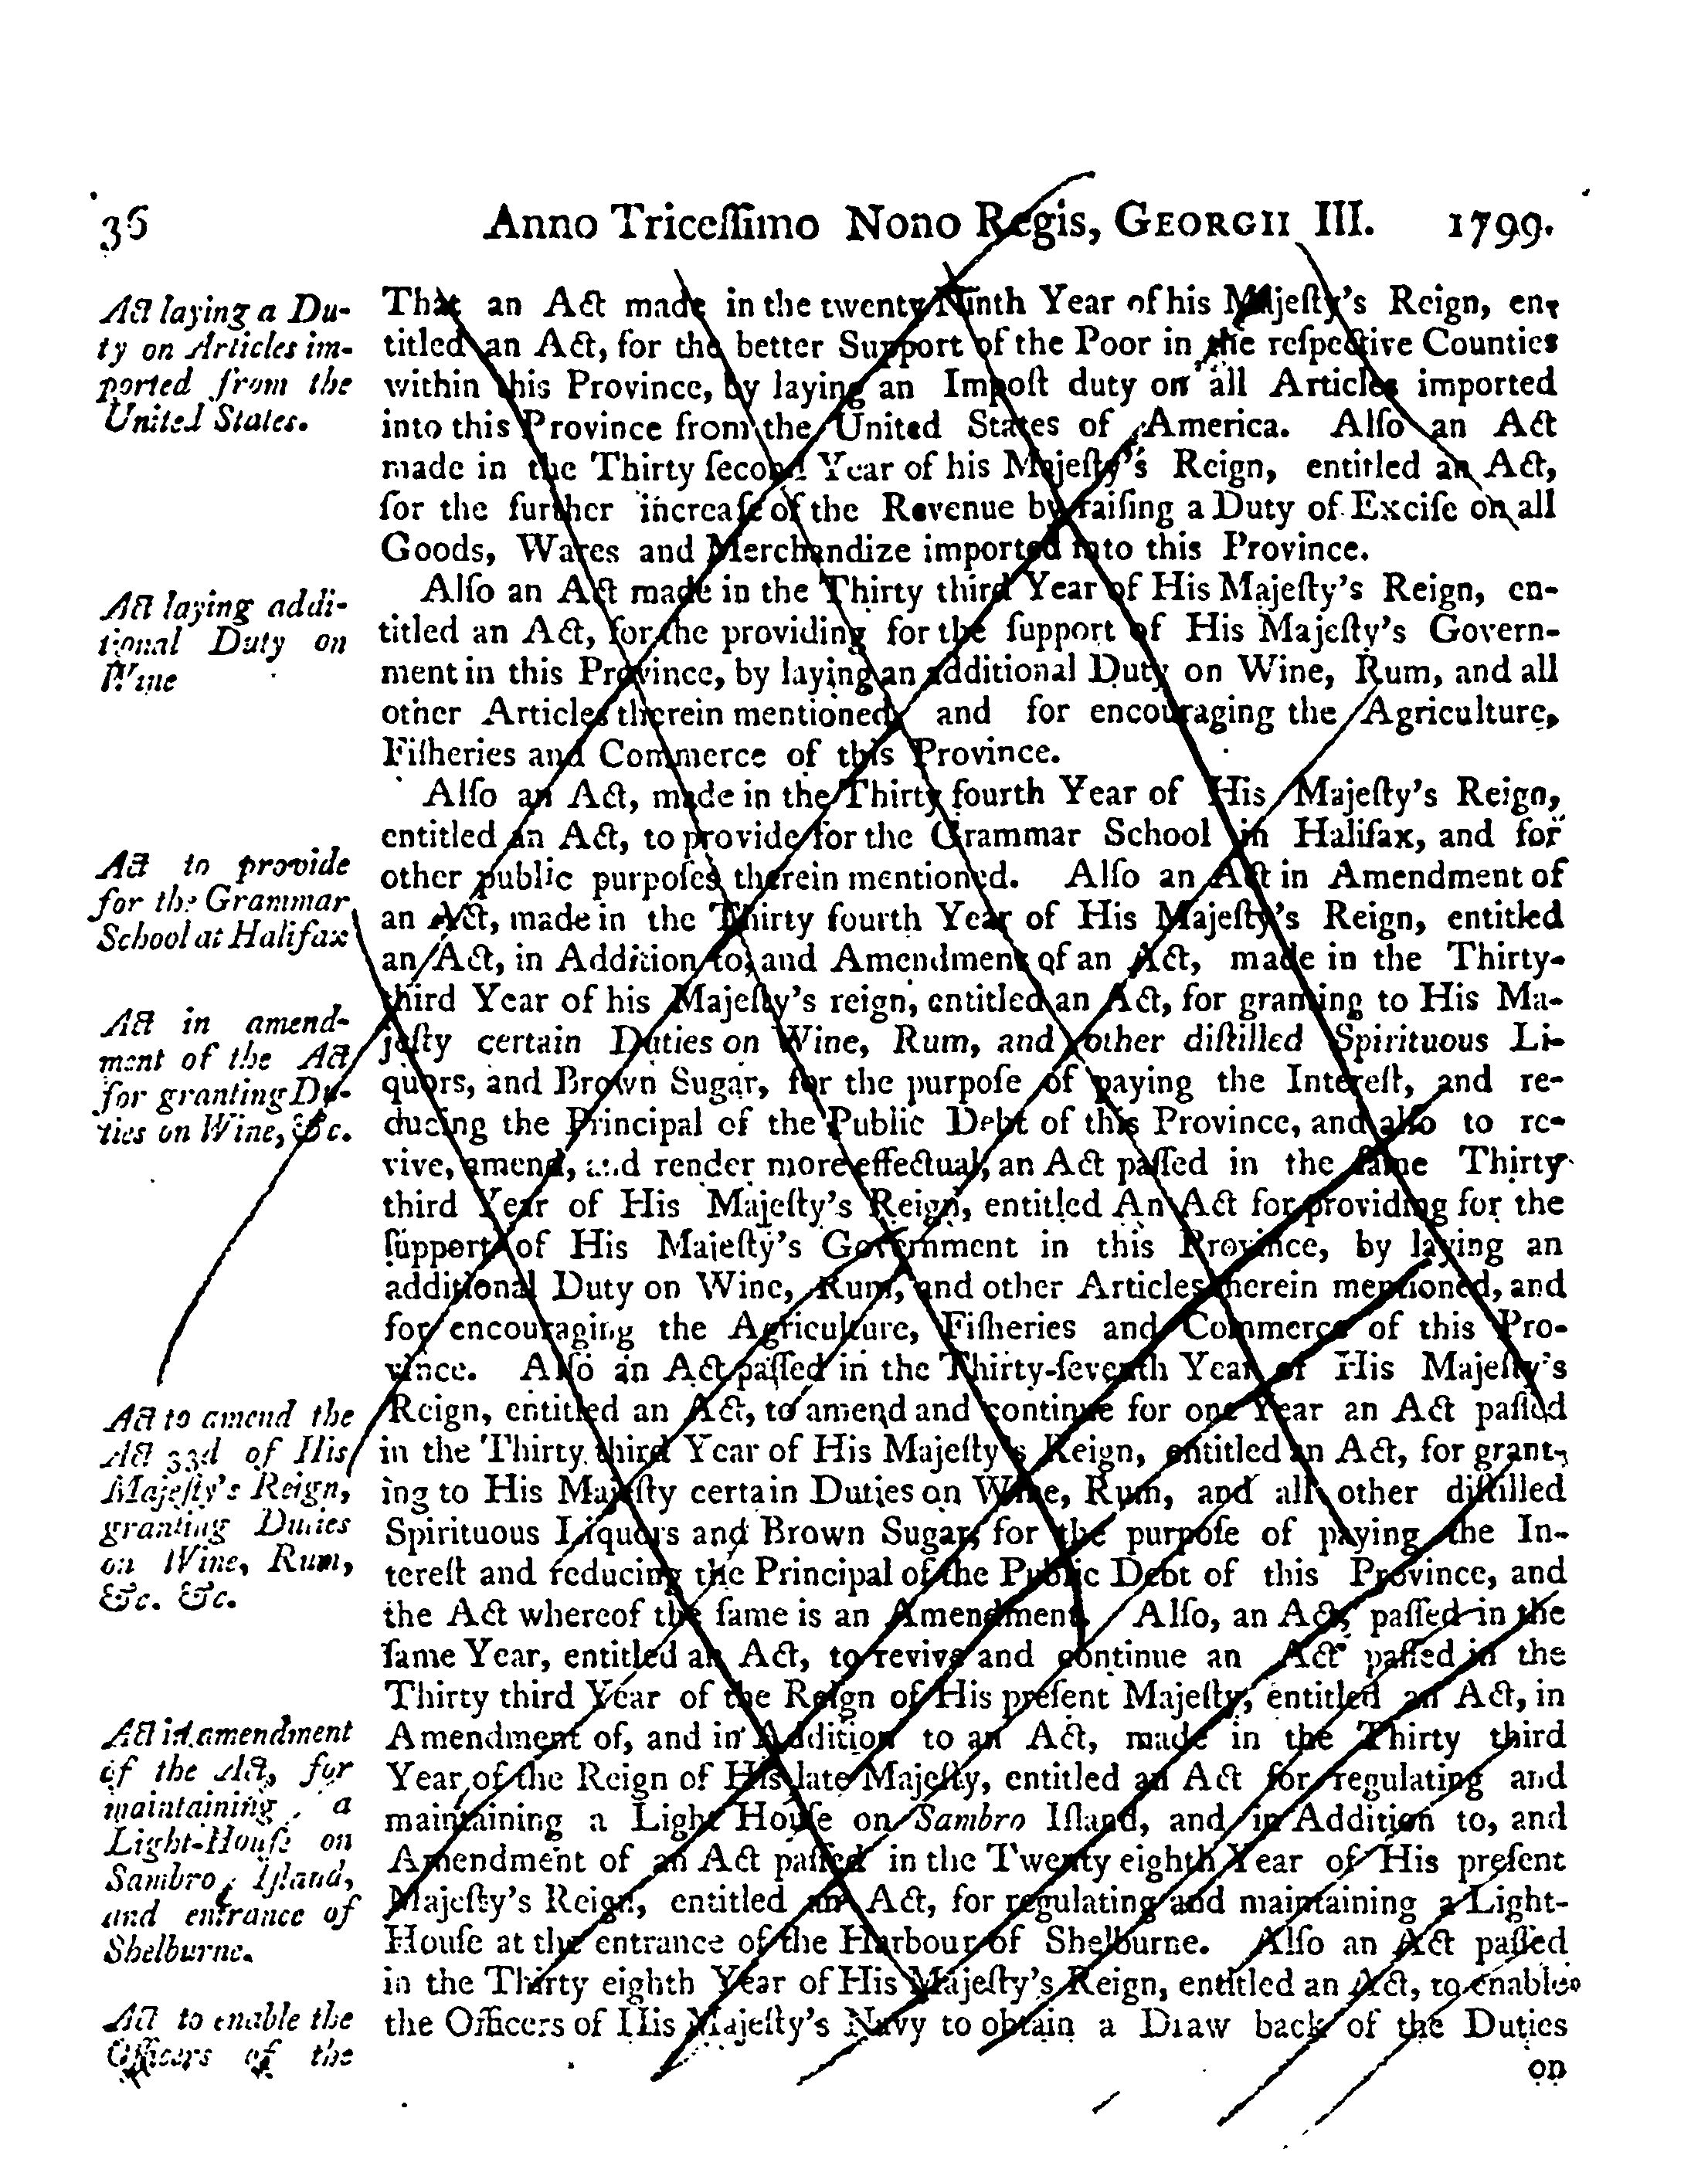 36 Anno Triceſſimo Nono Regis, GEORGII III. 1799.
Act laying a Du-
ty on Articles im-
ported from the
United States.
That an Act made in the twenty Ninth Year of his Majeſty's Reign, en-
titled an Act, for the better Support of the Poor in the reſpective Counties
within this Province, by laying an Impoſt duty on all Articles imported
into this Province from the United States of America. Alſo an Act
made in the Thirty ſecond Year of his Majeſty's Reign, entitled an Act,
for the further increaſe of the Revenue by raiſing a Duty of Exciſe on all
Goods, Wares and Merchandize imported into this Province.
Act laying addi-
tional Duty on
Wine
Alſo an Act made in the Thirty third Year of His Majeſty's Reign, en-
titled an Act, for the providing for the ſupport of His Majeſty's Govern-
ment in this Province, by laying an additional Duty on Wine, Rum, and all
other Articles therein mentioned, and for encouraging the Agriculture,
Fiſheries and Commerce of this Province.
Act to provide
for the Grammar
School at Halifax
Alſo an Act, made in the Thirty fourth Year of His Majeſty's Reign,
entitled an Act, to provide for the Grammar School in Halifax, and for
other public purpoſes therein mentioned. Alſo an Act in Amendment of
an Act, made in the Thirty fourth Year of His Majeſty's Reign, entitled
an Act, in Addition to, and Amendment of an Act, made in the Thirty-
third Year of his Majeſty's reign, entitled an Act, for granting to His Ma-
jeſty certain Duties on Wine, Rum, and other diſtilled Spirituous Li-
quors, and Brown Sugar, for the purpoſe of paying the Intereſt, and re-
ducing the Principal of the Public Debt of this Province, and alſo to re-
vive, amend, and render more effectual, an Act paſſed in the ſame Thirty
third Year of His Majeſty's Reign, entitled An Act for providing for the
ſupport of His Majeſty's Government in this Province, by laying an
additional Duty on Wine, Rum, and other Articles therein mentioned, and
for encouraging the Agriculture, Fiſheries and Commerce of this Pro-
vince. Alſo an Act paſſed in the Thirty-ſeventh Year of His Majeſty's
Reign, entitled an Act, to amend and continue for one Year an Act paſſed
in the Thirty third Year of His Majeſty's Reign, entitled an Act, for grant-
ing to His Majeſty certain Duties on Wine, Rum, and all other diſtilled
Spirituous Liquors and Brown Sugar, for the purpoſe of paying the In-
tereſt and reducing the Principal of the Public Debt of this Province, and
the Act whereof the ſame is an Amendment. Alſo, an Act, paſſed in the
ſame Year, entitled an Act, to revive and continue an Act paſſed in the
Thirty third Year of the Reign of His preſent Majeſty, entitled an Act, in
Amendment of, and in Addition to an Act, made in the Thirty third
Year of the Reign of His late Majeſty, entitled an Act for regulating and
maintaining a Light Houſe on Sambro Iſland, and in Addition to, and
Amendment of an Act paſſed in the Twenty eighth Year of His preſent
Majeſty's Reign, entitled an Act, for regulating and maintaining a Light-
Houſe at the entrance of the Harbour of Shelburne. Alſo an Act paſſed
in the Thirty eighth Year of His Majeſty's Reign, entitled an Act, to enable
the Officers of His Majeſty's Navy to obtain a Draw back of the Duties
on
Act in amend-
ment of the Act
for granting Du-
ties on Wine, &c.
Act to amend the
Act 33d of His
Majeſty's Reign,
granting Duties
on Wine, Rum,
&c. &c.
Act in amendment
of the Act, for
maintaining a
Light-Houſe on
Sambro Iſland,
and entrance of
Shelburne.
Act to enable the
Officers of the